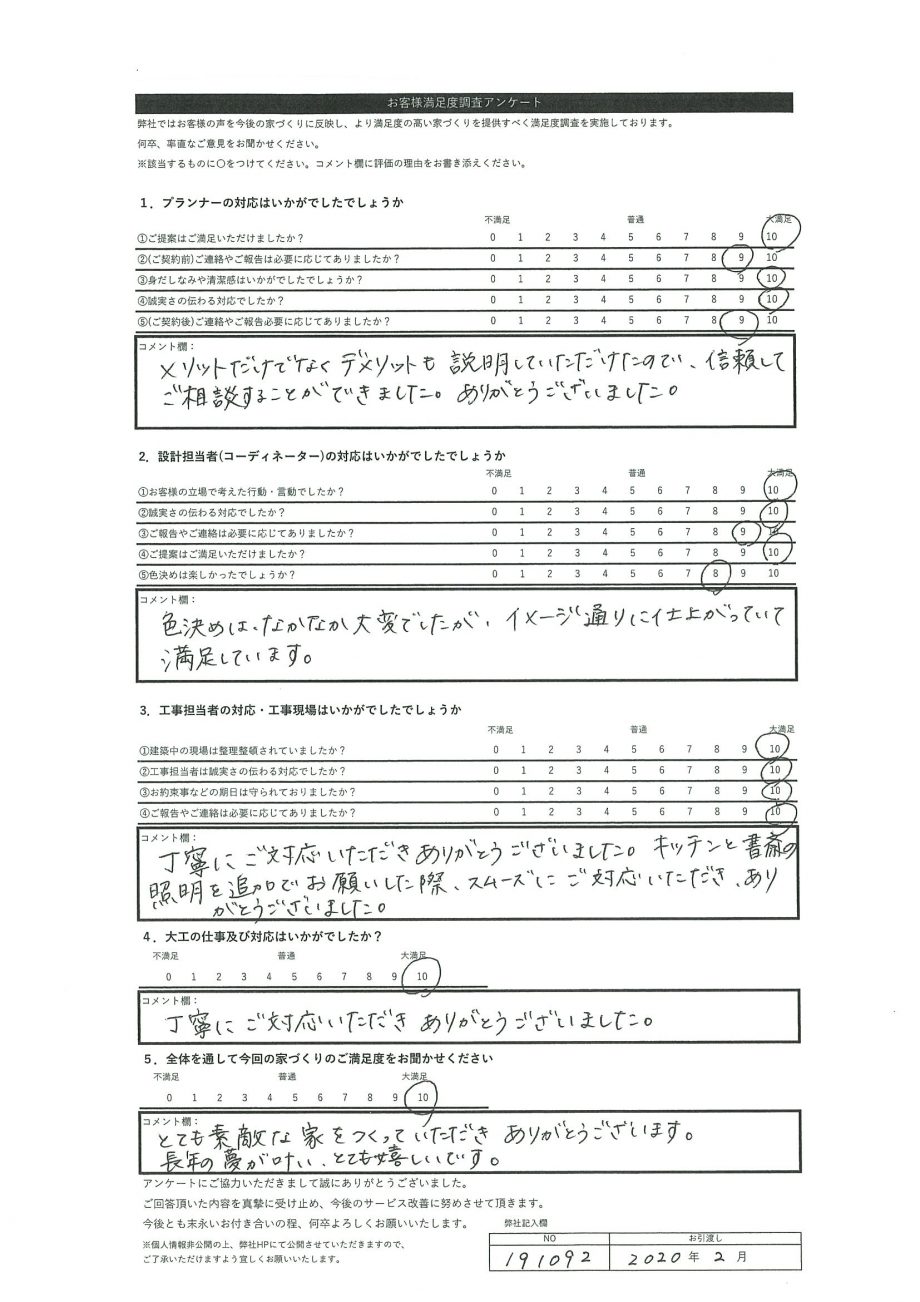 お客様満足度調査アンケート
弊社ではお客様の声を今後の家づくりに反映し、より満足度の高い家づくりを提供すべく満足度調査を実施しております。
何卒、率直なご意見をお聞かせください。
※該当するものに〇をつけてください。コメント欄に評価の理由をお書き添えください。
1．プランナーの対応はいかがでしたでしょうか
不満足 普通 大満足
①ご提案はご満足いただけましたか？ 0 1 2 3 4 5 6 7 8 9 10
②(ご契約前)ご連絡やご報告は必要に応じてありましたか？ 0 1 2 3 4 5 6 7 8 9 10
③身だしなみや清潔感はいかがでしたでしょうか？ 0 1 2 3 4 5 6 7 8 9 10
④誠実さの伝わる対応でしたか？ 0 1 2 3 4 5 6 7 8 9 10
⑤(ご契約後)ご連絡やご報告必要に応じてありましたか？ 0 1 2 3 4 5 6 7 8 9 10
コメント欄：
メリットだけでなくデメリットも説明していただけたので、信頼して
ご相談することができました。ありがとうございました。
2．設計担当者(コーディネーター)の対応はいかがでしたでしょうか
不満足 普通 大満足
①お客様の立場で考えた行動・言動でしたか？ 0 1 2 3 4 5 6 7 8 9 10
②誠実さの伝わる対応でしたか？ 0 1 2 3 4 5 6 7 8 9 10
③ご報告やご連絡は必要に応じてありましたか？ 0 1 2 3 4 5 6 7 8 9 10
④ご提案はご満足いただけましたか？ 0 1 2 3 4 5 6 7 8 9 10
⑤色決めは楽しかったでしょうか？ 0 1 2 3 4 5 6 7 8 9 10
コメント欄：
色決めは、なかなか大変でしたが、イメージ通りに仕上がっていて
満足しています。
3．工事担当者の対応・工事現場はいかがでしたでしょうか
不満足 普通 大満足
①建築中の現場は整理整頓されていましたか？ 0 1 2 3 4 5 6 7 8 9 10
②工事担当者は誠実さの伝わる対応でしたか？ 0 1 2 3 4 5 6 7 8 9 10
③お約束事などの期日は守られておりましたか？ 0 1 2 3 4 5 6 7 8 9 10
④ご報告やご連絡は必要に応じてありましたか？ 0 1 2 3 4 5 6 7 8 9 10
コメント欄：
丁寧にご対応いただきありがとうございました。キッチンと書斎の
照明を追加でお願いした際、スムーズにご対応いただき、あり
がとうございました。
4．大工の仕事及び対応はいかがでしたか？
不満足 普通 大満足
0 1 2 3 4 5 6 7 8 9 10
コメント欄：
丁寧にご対応いただきありがとうございました。
5．全体を通して今回の家づくりのご満足度をお聞かせください
不満足 普通 大満足
0 1 2 3 4 5 6 7 8 9 10
コメント欄：
とても素敵な家をつくっていただきありがとうございます。
長年の夢が叶い、とても嬉しいです。
アンケートにご協力いただきまして誠にありがとうございました。
ご回答頂いた内容を真摯に受け止め、今後のサービス改善に努めさせて頂きます。
今後とも末永いお付き合いの程、何卒よろしくお願いいたします。
※個人情報非公開の上、弊社HPにて公開させていただきますので、
ご了承いただけますよう宜しくお願いいたします。
弊社記入欄
NO お引渡し
191092 2020年2月